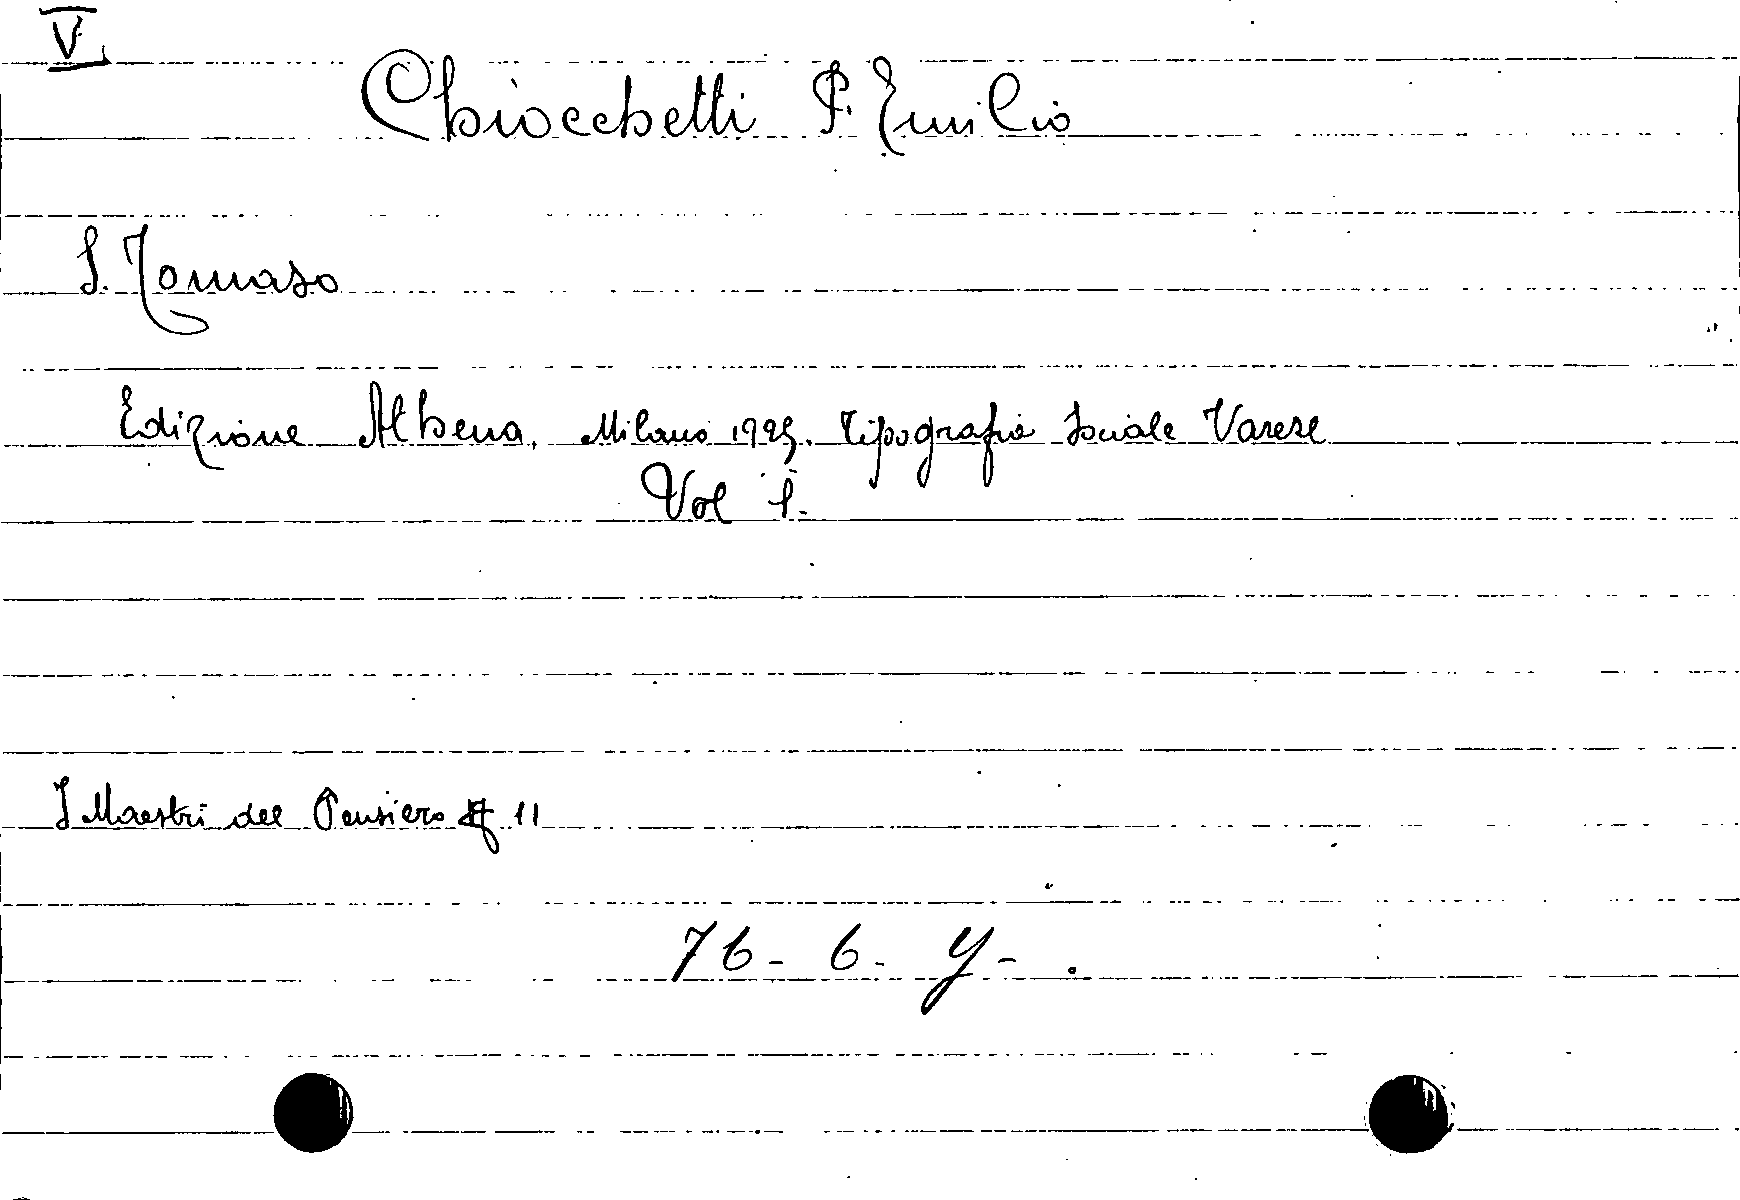 V
Chiocchetti P. Emilio
S. Tomaso
Edizione Athena, Milano 1925. Tipografia Sociale Varese
Vol 1.
I Maestri del Pensiero 11
76 - 6 - Y - .